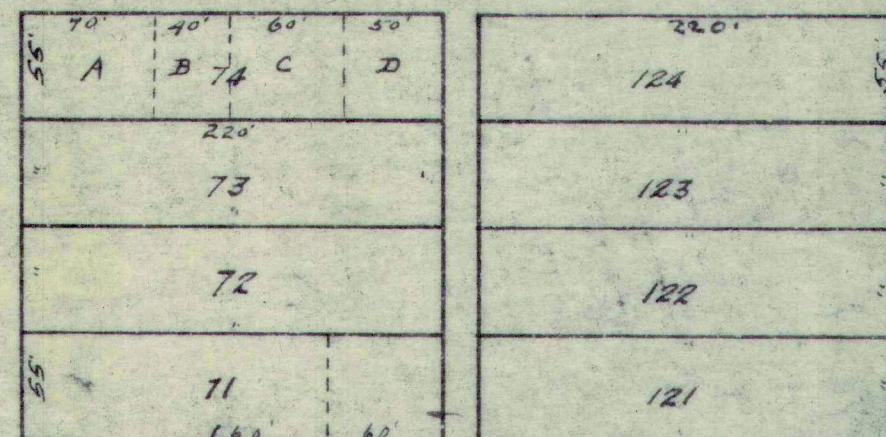 70' 40' 60' 50'
55' A B 74 C D
220'
" 73
"
" 72
"
55' 71
160' 60'
220'
124 55'
"
123 "
122 "
121 "